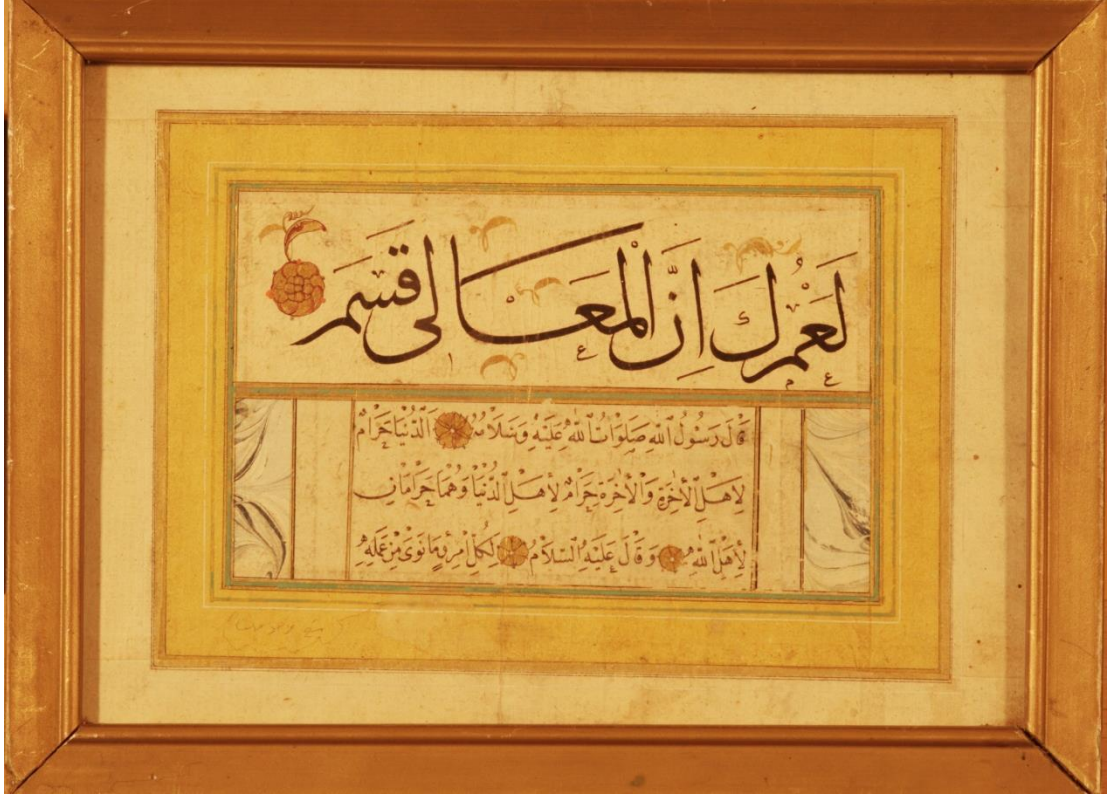 لَعَمْرُكَ اِنَّ الْمَعَالى قَسَمَ
قَالَ رَسُولُ اللّٰهِ صَلَوَاتُ اللّٰهِ عَلَيْهِ وَسَلَامُهُ اَلدُّنْيَا حَرَامٌ
لِاَهْلِ الْاٰخِرَةِ وَالْاٰخِرَةُ حَرَامٌ لِاَهْلِ الدُّنْيَا وَهُمَا حَرَامَانِ
لِاَهْلِ اللّٰهِ وَقَالَ عَلَيْهِ السَّلَامُ لِكُلِّ امْرِئٍ مَا نَوٰى مِنْ عَمَلِهِ